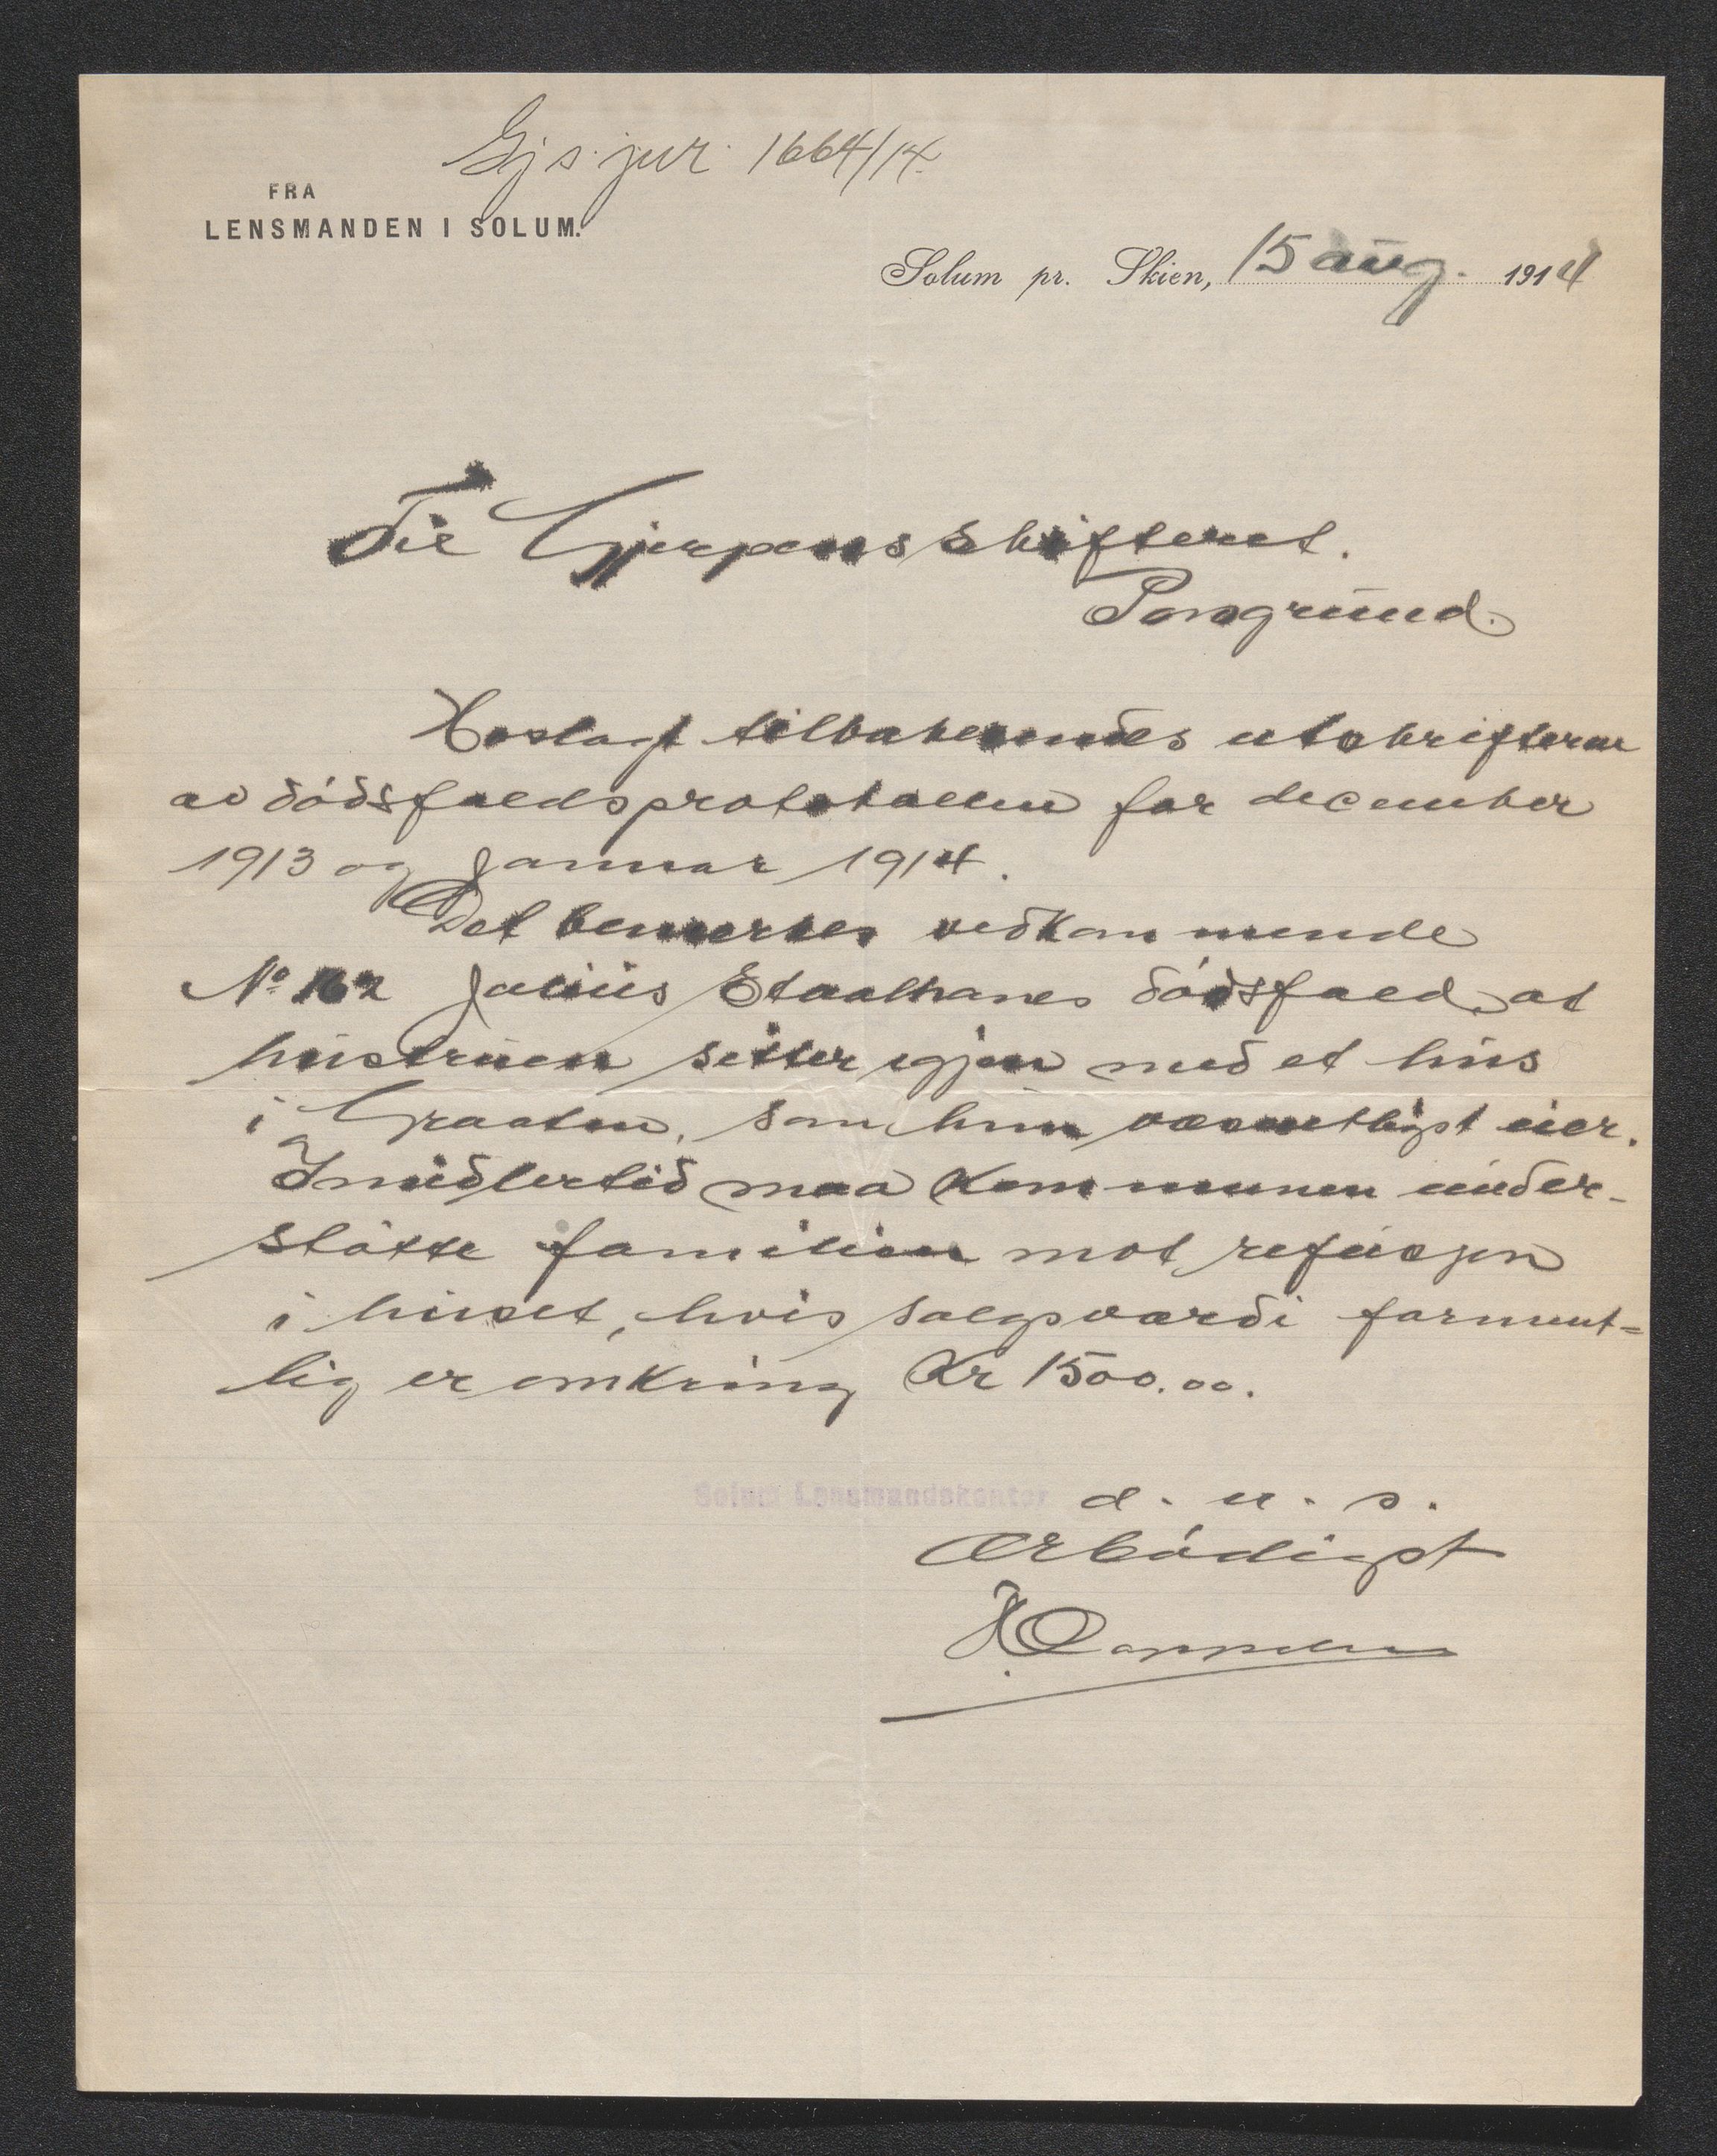 Gjs. jur. 1664/14.
FRA
LENSMANDEN I SOLUM.
Solum pr. Skien, 15 aug. 1914
Til Gjerpens skifteret.
Porsgrund.
Hoslagt tilbakesendes utskrifterne
av dödsfaldsprotokollen for december
1913 og januar 1914.
Det bemerkes vedkommende
No 162 Julius Staalhanes dödsfald, at
hustruen sitter igjen med et hus
i Graaten, som hun væsentligst eier.
Imidlertid maa kommunen under-
stötte familien mot refusjon
i huset, hvis salgsværdi forment-
lig er omkring Kr 1500.00.
Solum Lensmandskontor d. u. s.
Ærbödigst